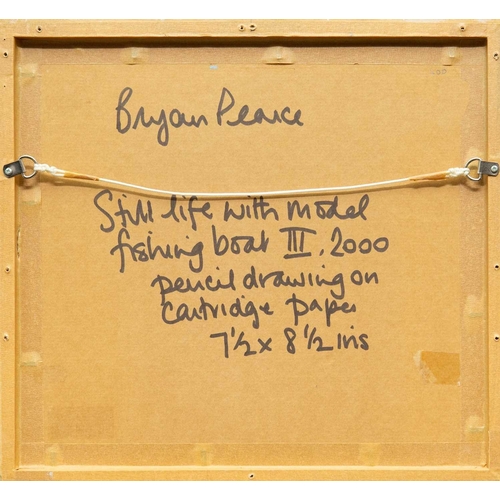 Bryan Pearce
Still life with model
fishing boat III, 2000
pencil drawing on
cartridge paper
7 1/2 x 8 1/2 ins